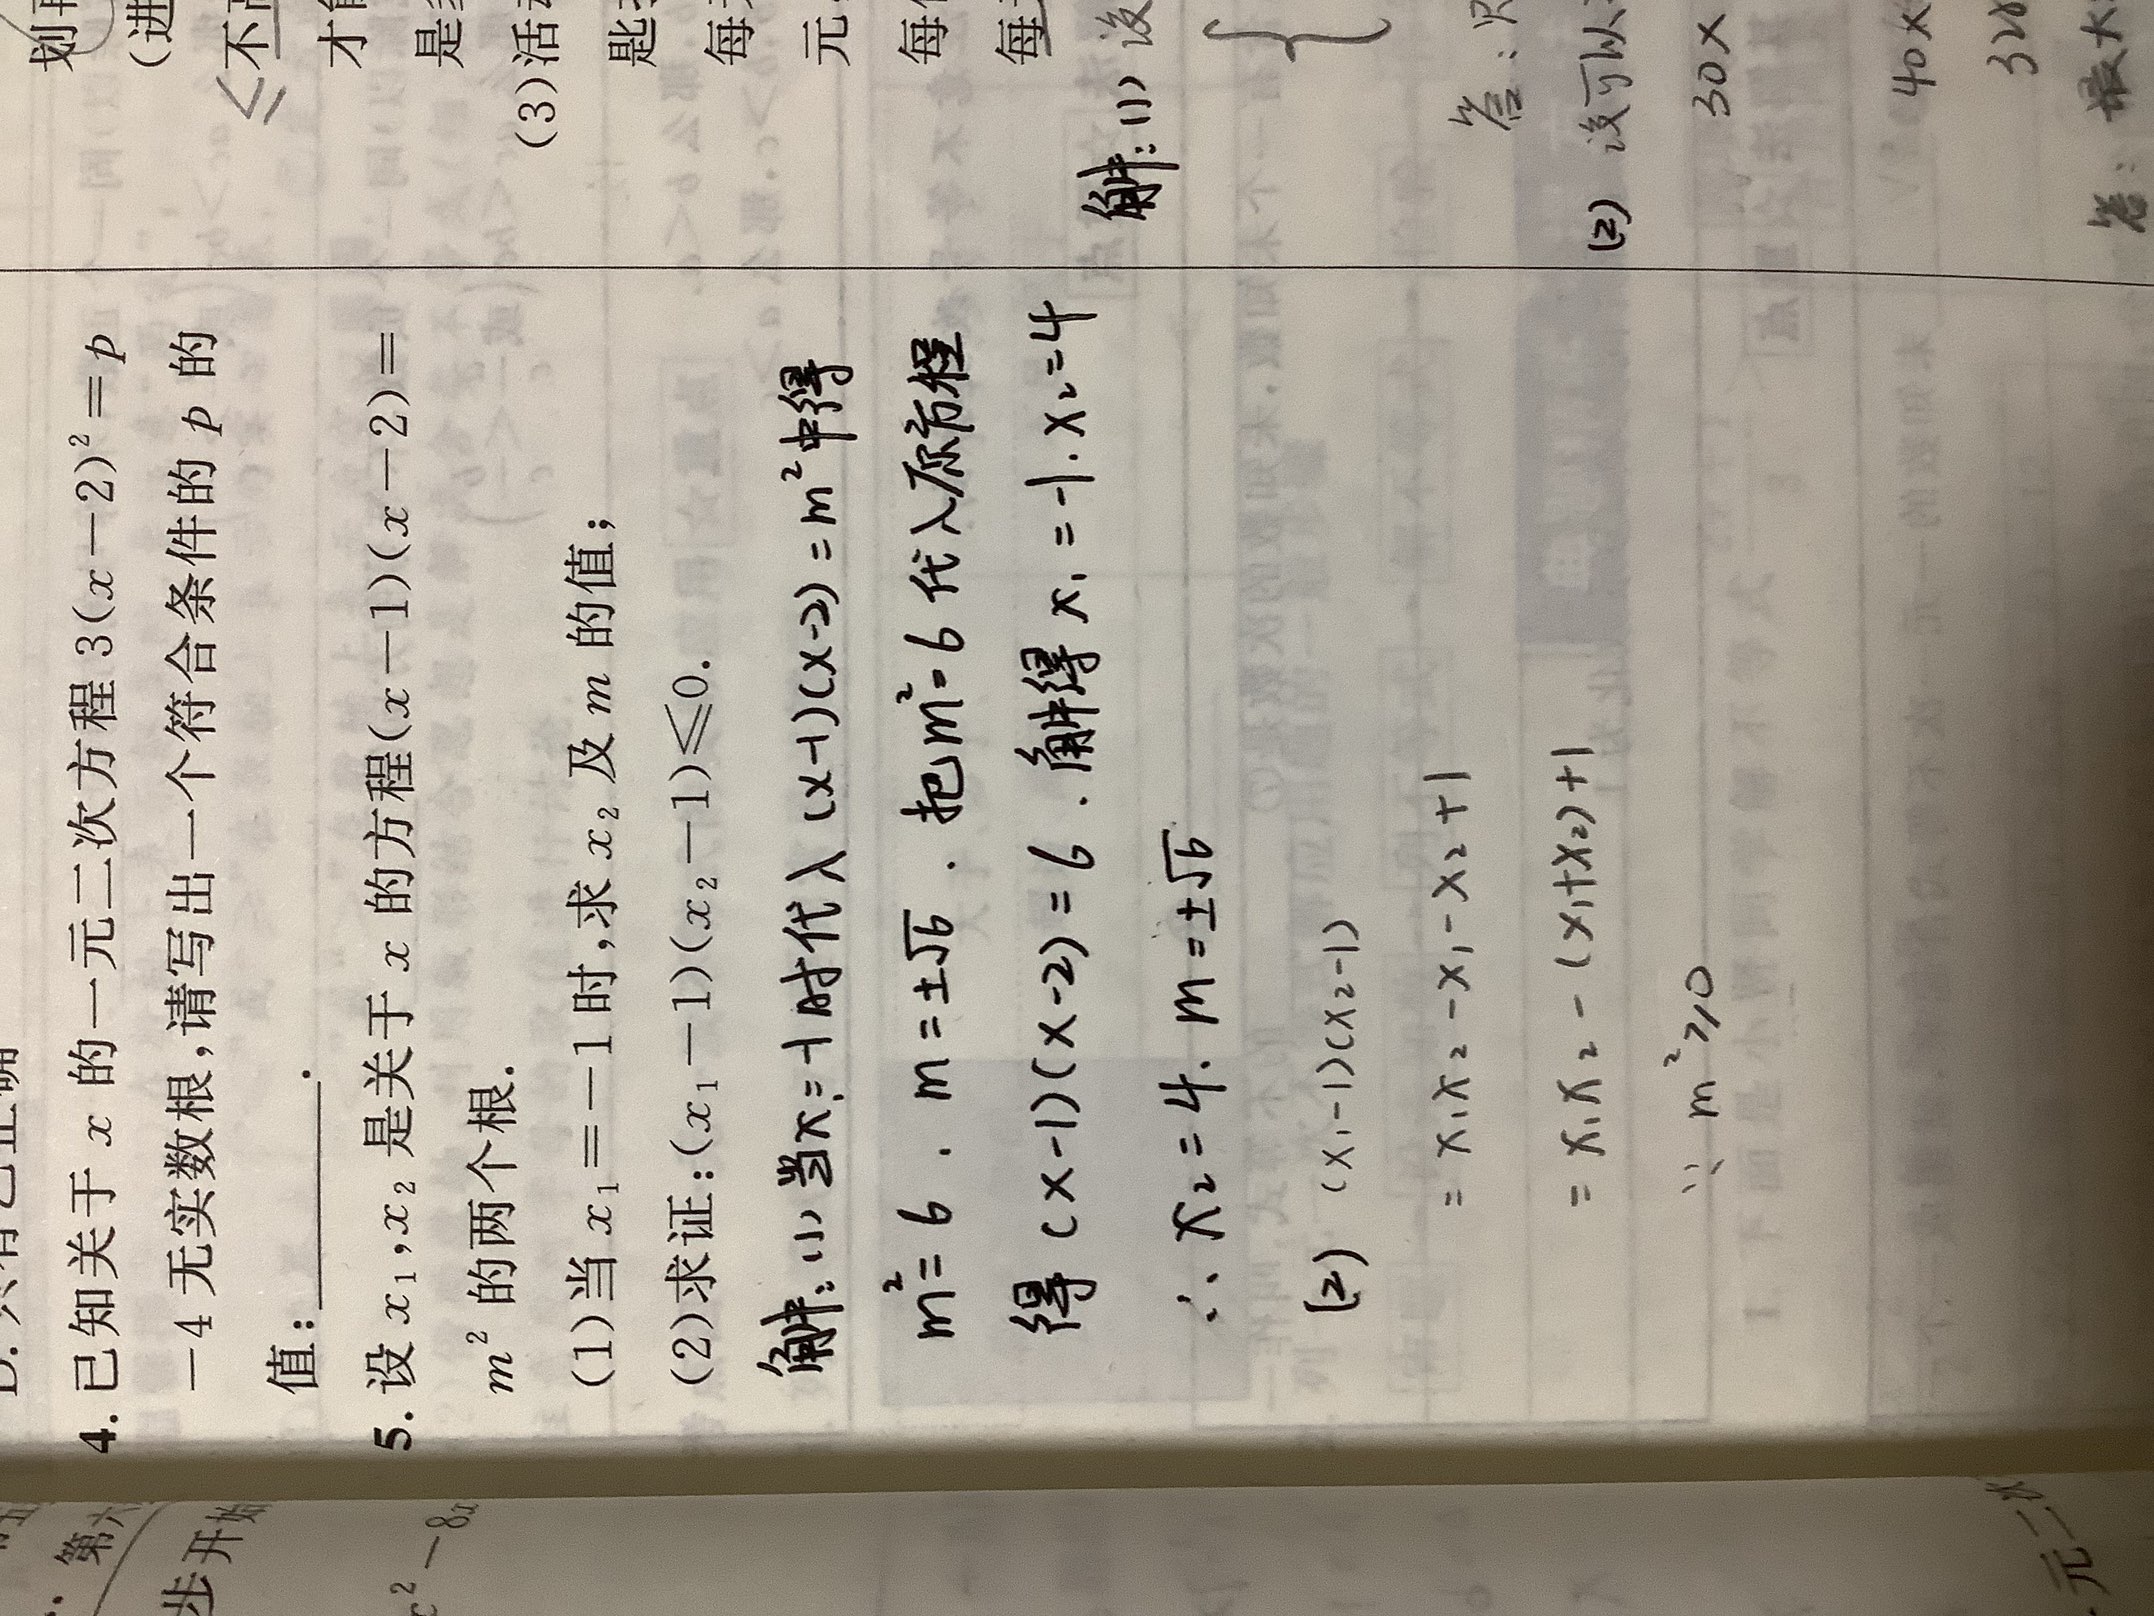 4. 已知关于 x 的一元二次方程 3(x-2)²=p
-4 无实数根,请写出一个符合条件的 p 的
值:________.
5. 设 x₁,x₂ 是关于 x 的方程(x-1)(x-2)=
m² 的两个根.
(1)当 x₁=-1 时,求 x₂ 及 m 的值;
(2)求证:(x₁-1)(x₂-1)≤0.
解:(1) 当x₁=-1时代入 (x-1)(x-2)=m²中得
m²=6. m=±√6. 把m²=6代入原方程
得 (x-1)(x-2)=6. 解得 x₁=-1. x₂=4
∴ x₂=4. m=±√6
(2) (x₁-1)(x₂-1)
= x₁x₂-x₁-x₂+1
= x₁x₂-(x₁+x₂)+1
∵ m²≥0
(进
≤不
才
是
(3)活
匙
每
元
每
每
解:(1) 设
{
答:
(2) 设可以
30x
40x
答: 最大
第六
步开始
x²-8
元二次